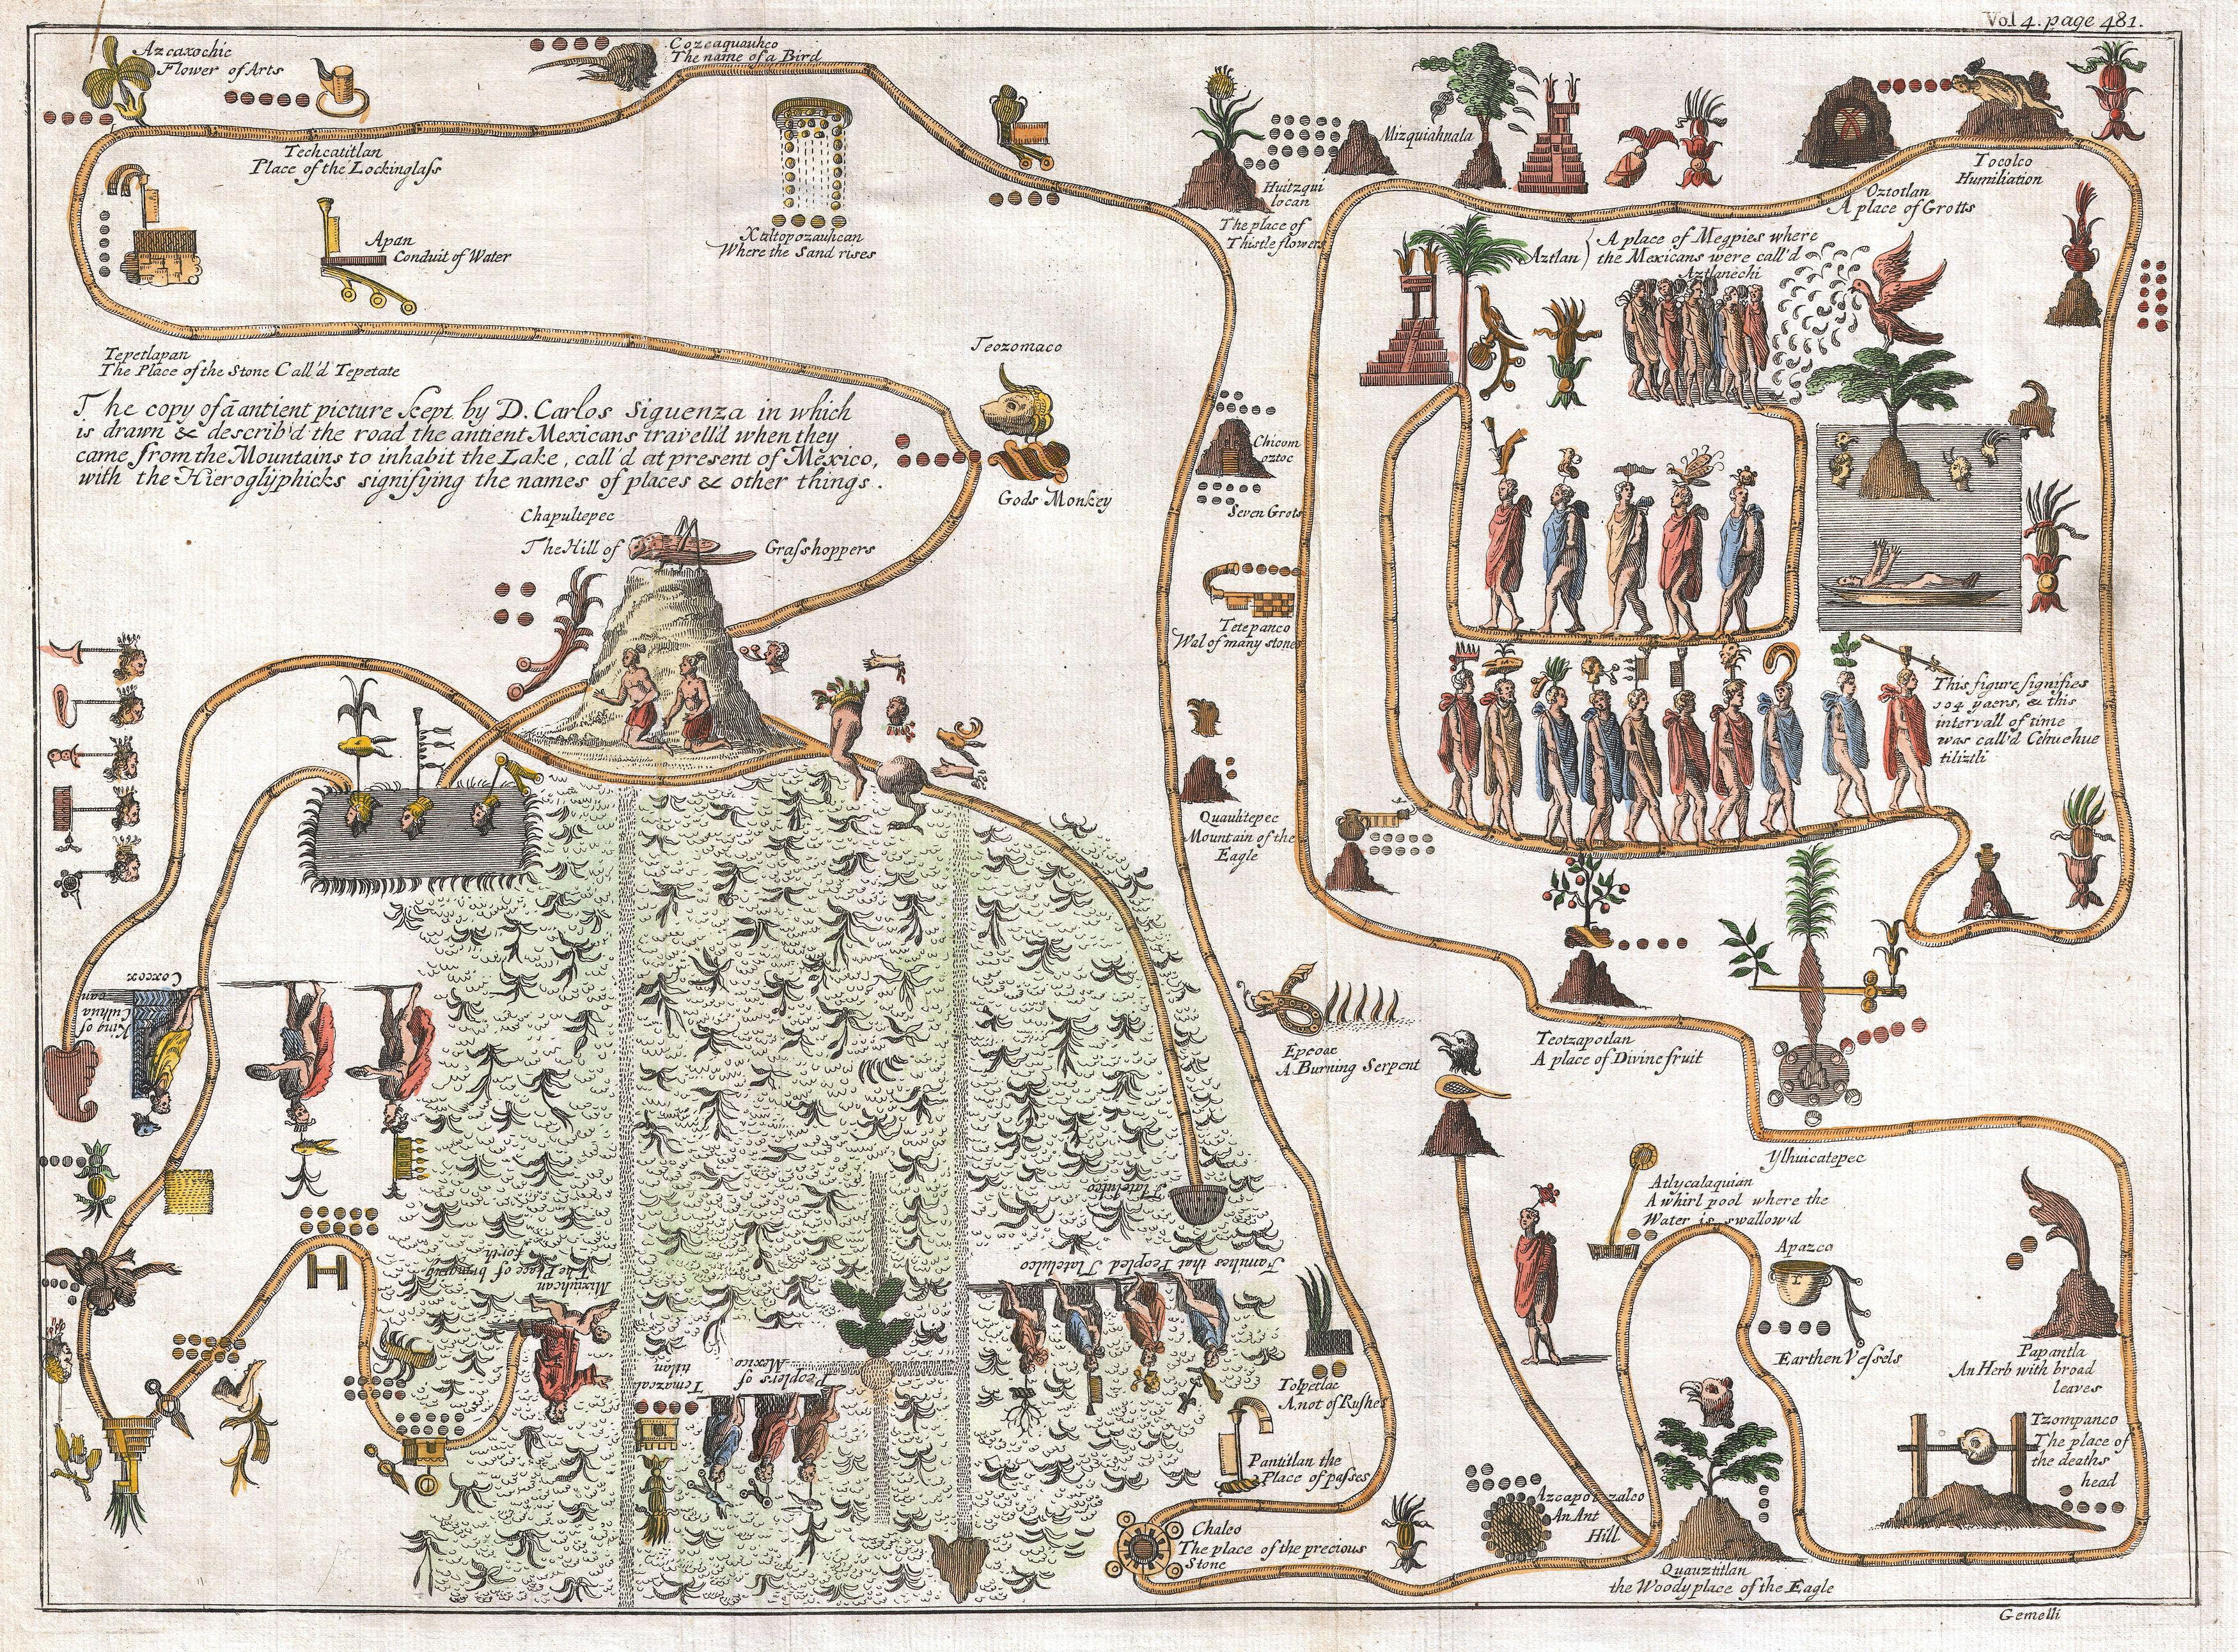 Vol 4. page 481.
Azcaxochic
Flower of Arts
Cozcaquauhco
The name of a Bird
Techcatitlan
Place of the Lockinglass
Apan
Conduit of Water
Xaltopozauhcan
Where the Sand rises
Huitzqui
locan
The place of
Thistle flowers
Mizquiahuala
Oztotlan
A place of Grotts
Tocolco
Humiliation
Aztlan
A place of Megpies where
the Mexicans were call'd
Aztlanechi
Tepetlapan
The Place of the Stone Call'd Tepetate
The copy of ā antient picture kept by D. Carlos Siguenza in which
is drawn & describ'd the road the antient Mexicans travell'd when they
came from the Mountains to inhabit the Lake, call'd at present of Mexico,
with the Hieroglyphicks signifying the names of places & other things.
Teozomaco
Gods Monkey
Chapultepec
The Hill of Grasshoppers
Chicom
oztoc
Seven Grots
Tetepanco
Wal of many stones
Quauhtepec
Mountain of the
Eagle
This figure signifies
104 yaers, & this
intervall of time
was call'd Cehuehue
tiliztli
Epcoac
A Burning Serpent
Teotzapotlan
A place of Divine fruit
Ylhuicatepec
Coxcox
King of
Culhua
can
Atlycalaquian
A whirl pool where the
Water is swallow'd
Apazco
Earthen Vessels
Papantla
An Herb with broad
leaves
Tzompanco
The place of
the deaths
head
Tlatelulco
Families that Peopled Tlatelulco
Mixiuhcan
The Place of bringing
forth
Temazcal
titlan
Peoplers of
Mexico
Tolpetlac
A not of Rushes
Pantitlan the
Place of passes
Chalco
The place of the precious
Stone
Azcapotzalco
An Ant
Hill
Quauztitlan
the Woody place of the Eagle
Gemelli